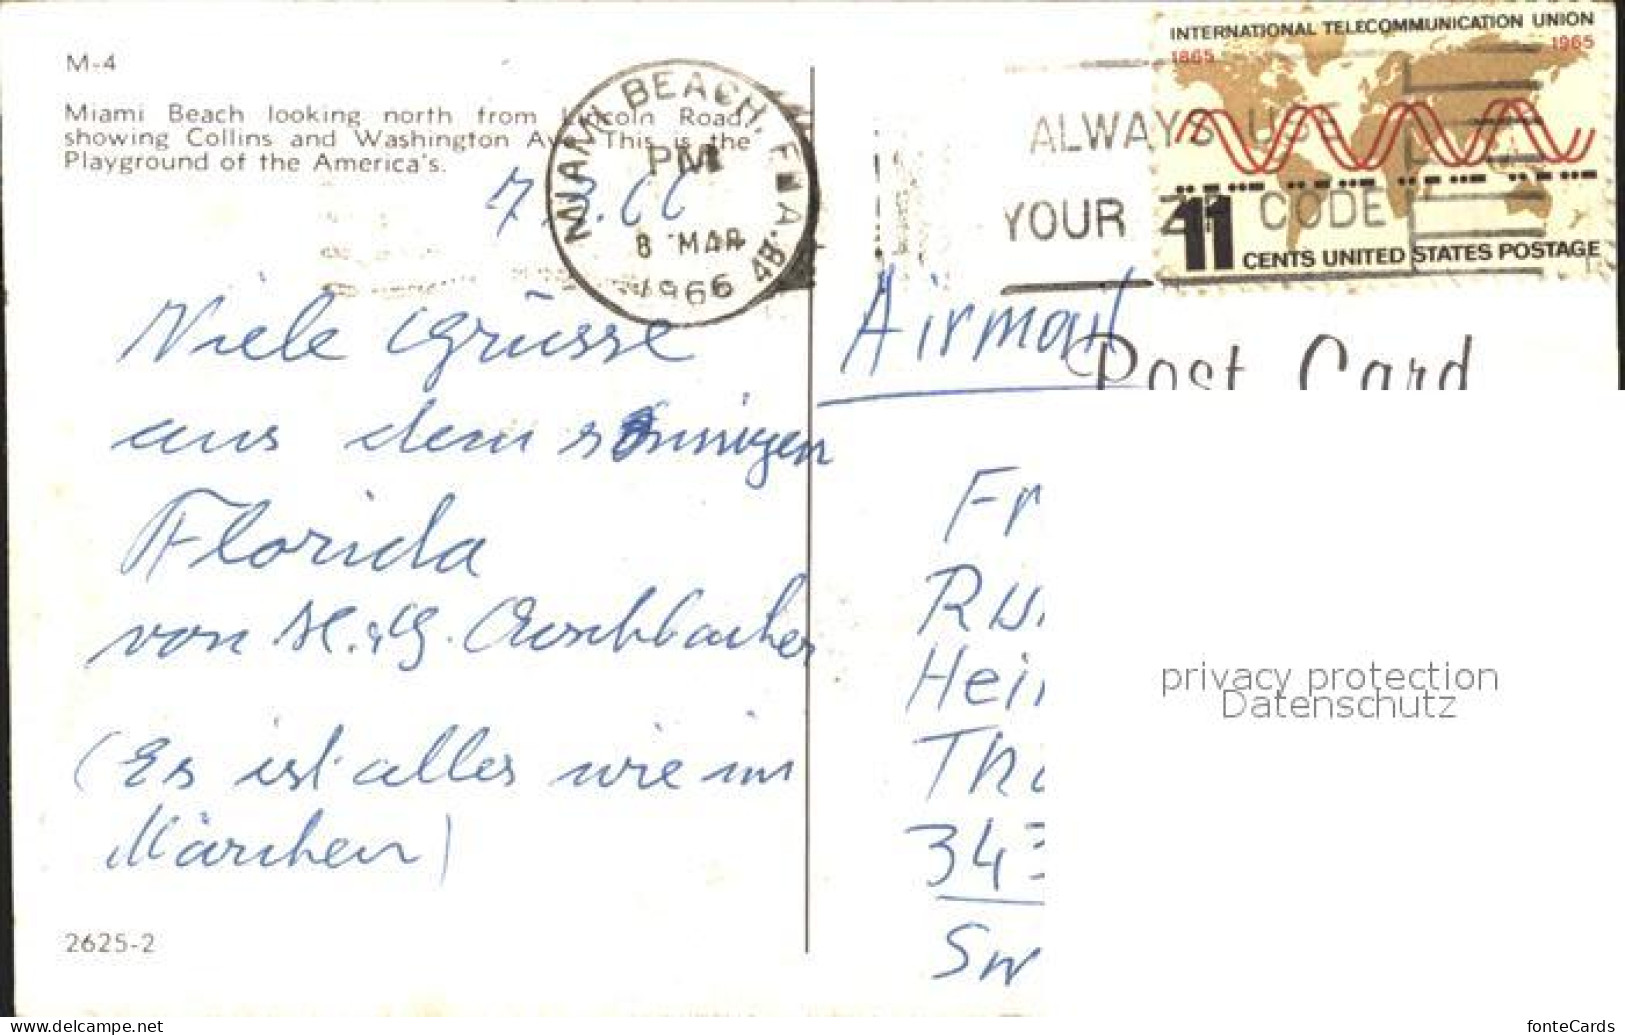 M-4
Miami Beach looking north from Lincoln Road,
showing Collins and Washington Ave. This is the
Playground of the America's.
7.3.66
MIAMI BEACH, FLA.
PM
8 MAR
1966
4B
ALWAYS USE
YOUR ZIP CODE
INTERNATIONAL TELECOMMUNICATION UNION
1865 1965
11 CENTS UNITED STATES POSTAGE
Airmail
Post Card
Viele Grüsse
aus dem sonnigen
Florida
von H. & G.
(Es ist alles wie im
Märchen)
2625-2
Fr
Hei
343
Sw
privacy protection
Datenschutz
www.delcampe.net
fonteCards